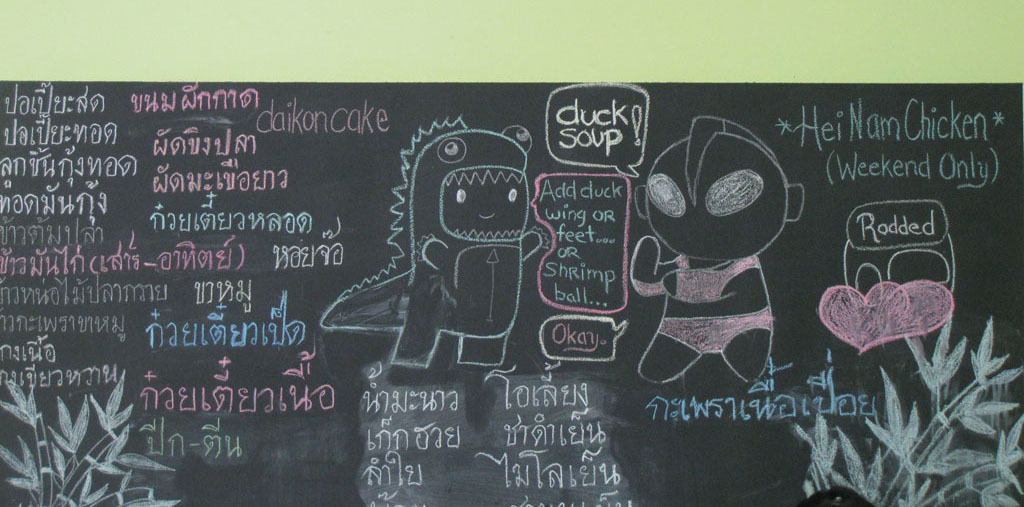 ปอเปี๊ยะสด
ปอเปี๊ยะทอด
ลูกชิ้นกุ้งทอด
ทอดมันกุ้ง
ข้าวต้มปลา
ข้าวมันไก่(เสาร์-อาทิตย์)
ข้าวหน่อไม้ปลากราย
ข้าวกะเพราขาหมู
แกงเนื้อ
แกงเขียวหวาน
ขนมผักกาด
daikon cake
ผัดขิงปลา
ผัดมะเขือยาว
ก๋วยเตี๋ยวหลอด
หอยจ๊อ
ขาหมู
ก๋วยเตี๋ยวเป็ด
ก๋วยเตี๋ยวเนื้อ
ปีก-ตีน
duck
soup!
Add duck
wing OR
feet....
OR
shrimp
ball...
Okay.
*Hei Nam Chicken*
(Weekend Only)
Rodded
กะเพราเนื้อเปื่อย
น้ำมะนาว
เก็กฮวย
ลำใย
โอเลี้ยง
ชาดำเย็น
ไมโลเย็น